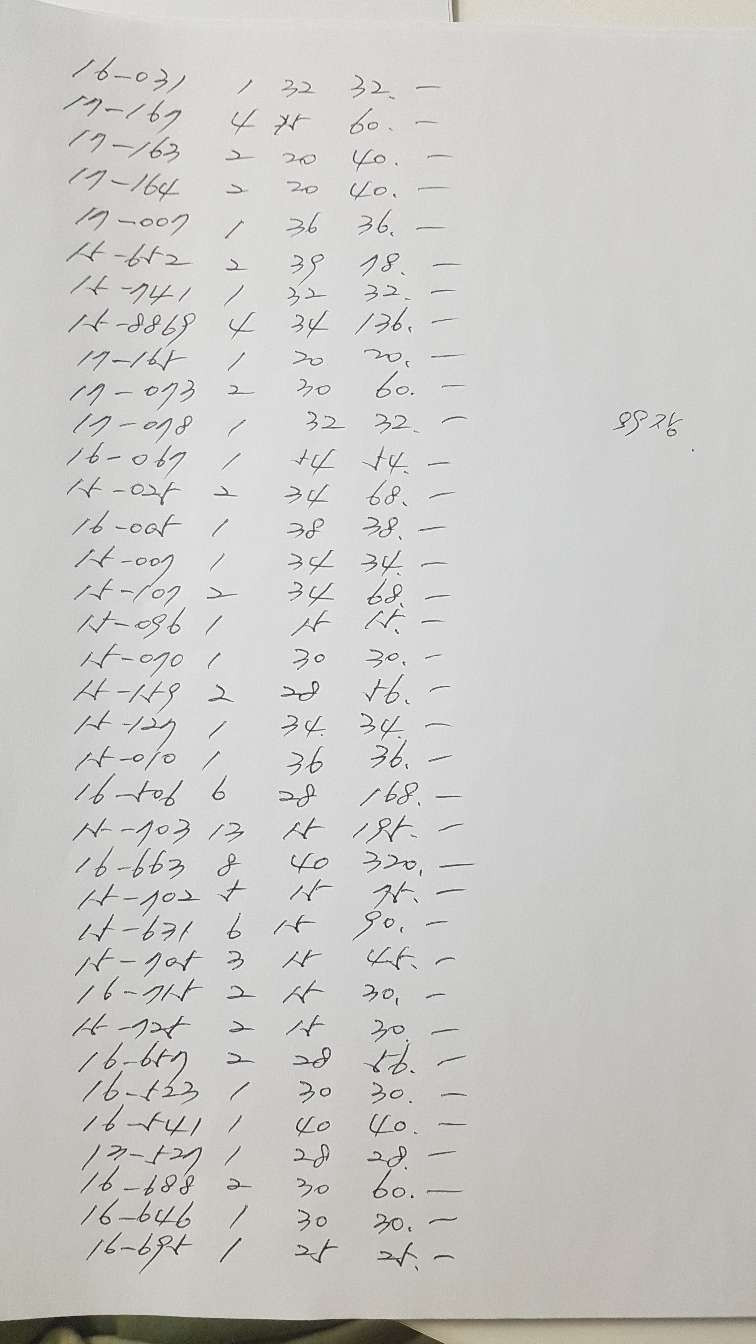 16-031 1 32 32.-
17-167 4 15 60.-
17-163 2 20 40.-
17-164 2 20 40.-
17-007 1 36 36.-
15-652 2 39 78.-
15-741 1 32 32.-
15-8869 4 34 136.-
17-165 1 20 20.-
17-073 2 30 60.-
17-078 1 32 32.- 88장.
16-067 1 54 54.-
15-025 2 34 68.-
16-005 1 38 38.-
15-007 1 34 34.-
15-107 2 34 68.-
15-096 1 15 15.-
15-070 1 30 30.-
15-159 2 28 56.-
15-127 1 34. 34.-
15-010 1 36 36.-
16-506 6 28 168.-
15-703 13 15 195.-
16-663 8 40 320.-
15-702 5 15 75.-
15-631 6 15 90.-
15-705 3 15 45.-
16-715 2 15 30.-
15-725 2 15 30.-
16-657 2 28 56.-
16-523 1 30 30.-
16-541 1 40 40.-
17-527 1 28 28.-
16-688 2 30 60.-
16-646 1 30 30.-
16-695 1 25 25.-